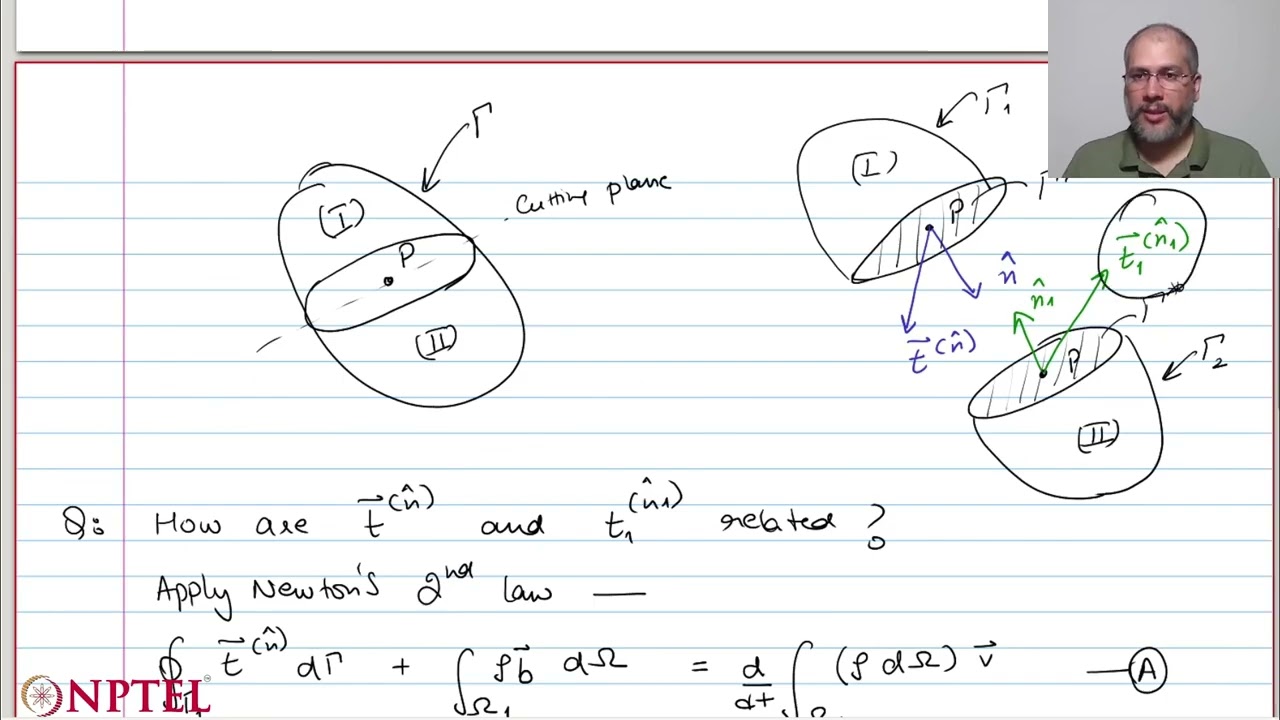 Γ
(I)
P
(II)
Cutting plane
Γ₁
(I)
P
n̂
t⃗^(n̂)
n̂₁
t⃗₁^(n̂₁)
P
Γ₂
(II)
Q: How are t⃗^(n̂) and t₁^(n̂₁) related ?
Apply Newton's 2nd law —
∮ t⃗^(n̂) dΓ + ∫_Ω₁ ρb⃗ dΩ = d/dt ∫ (ρ dΩ) v⃗ — (A)
NPTEL